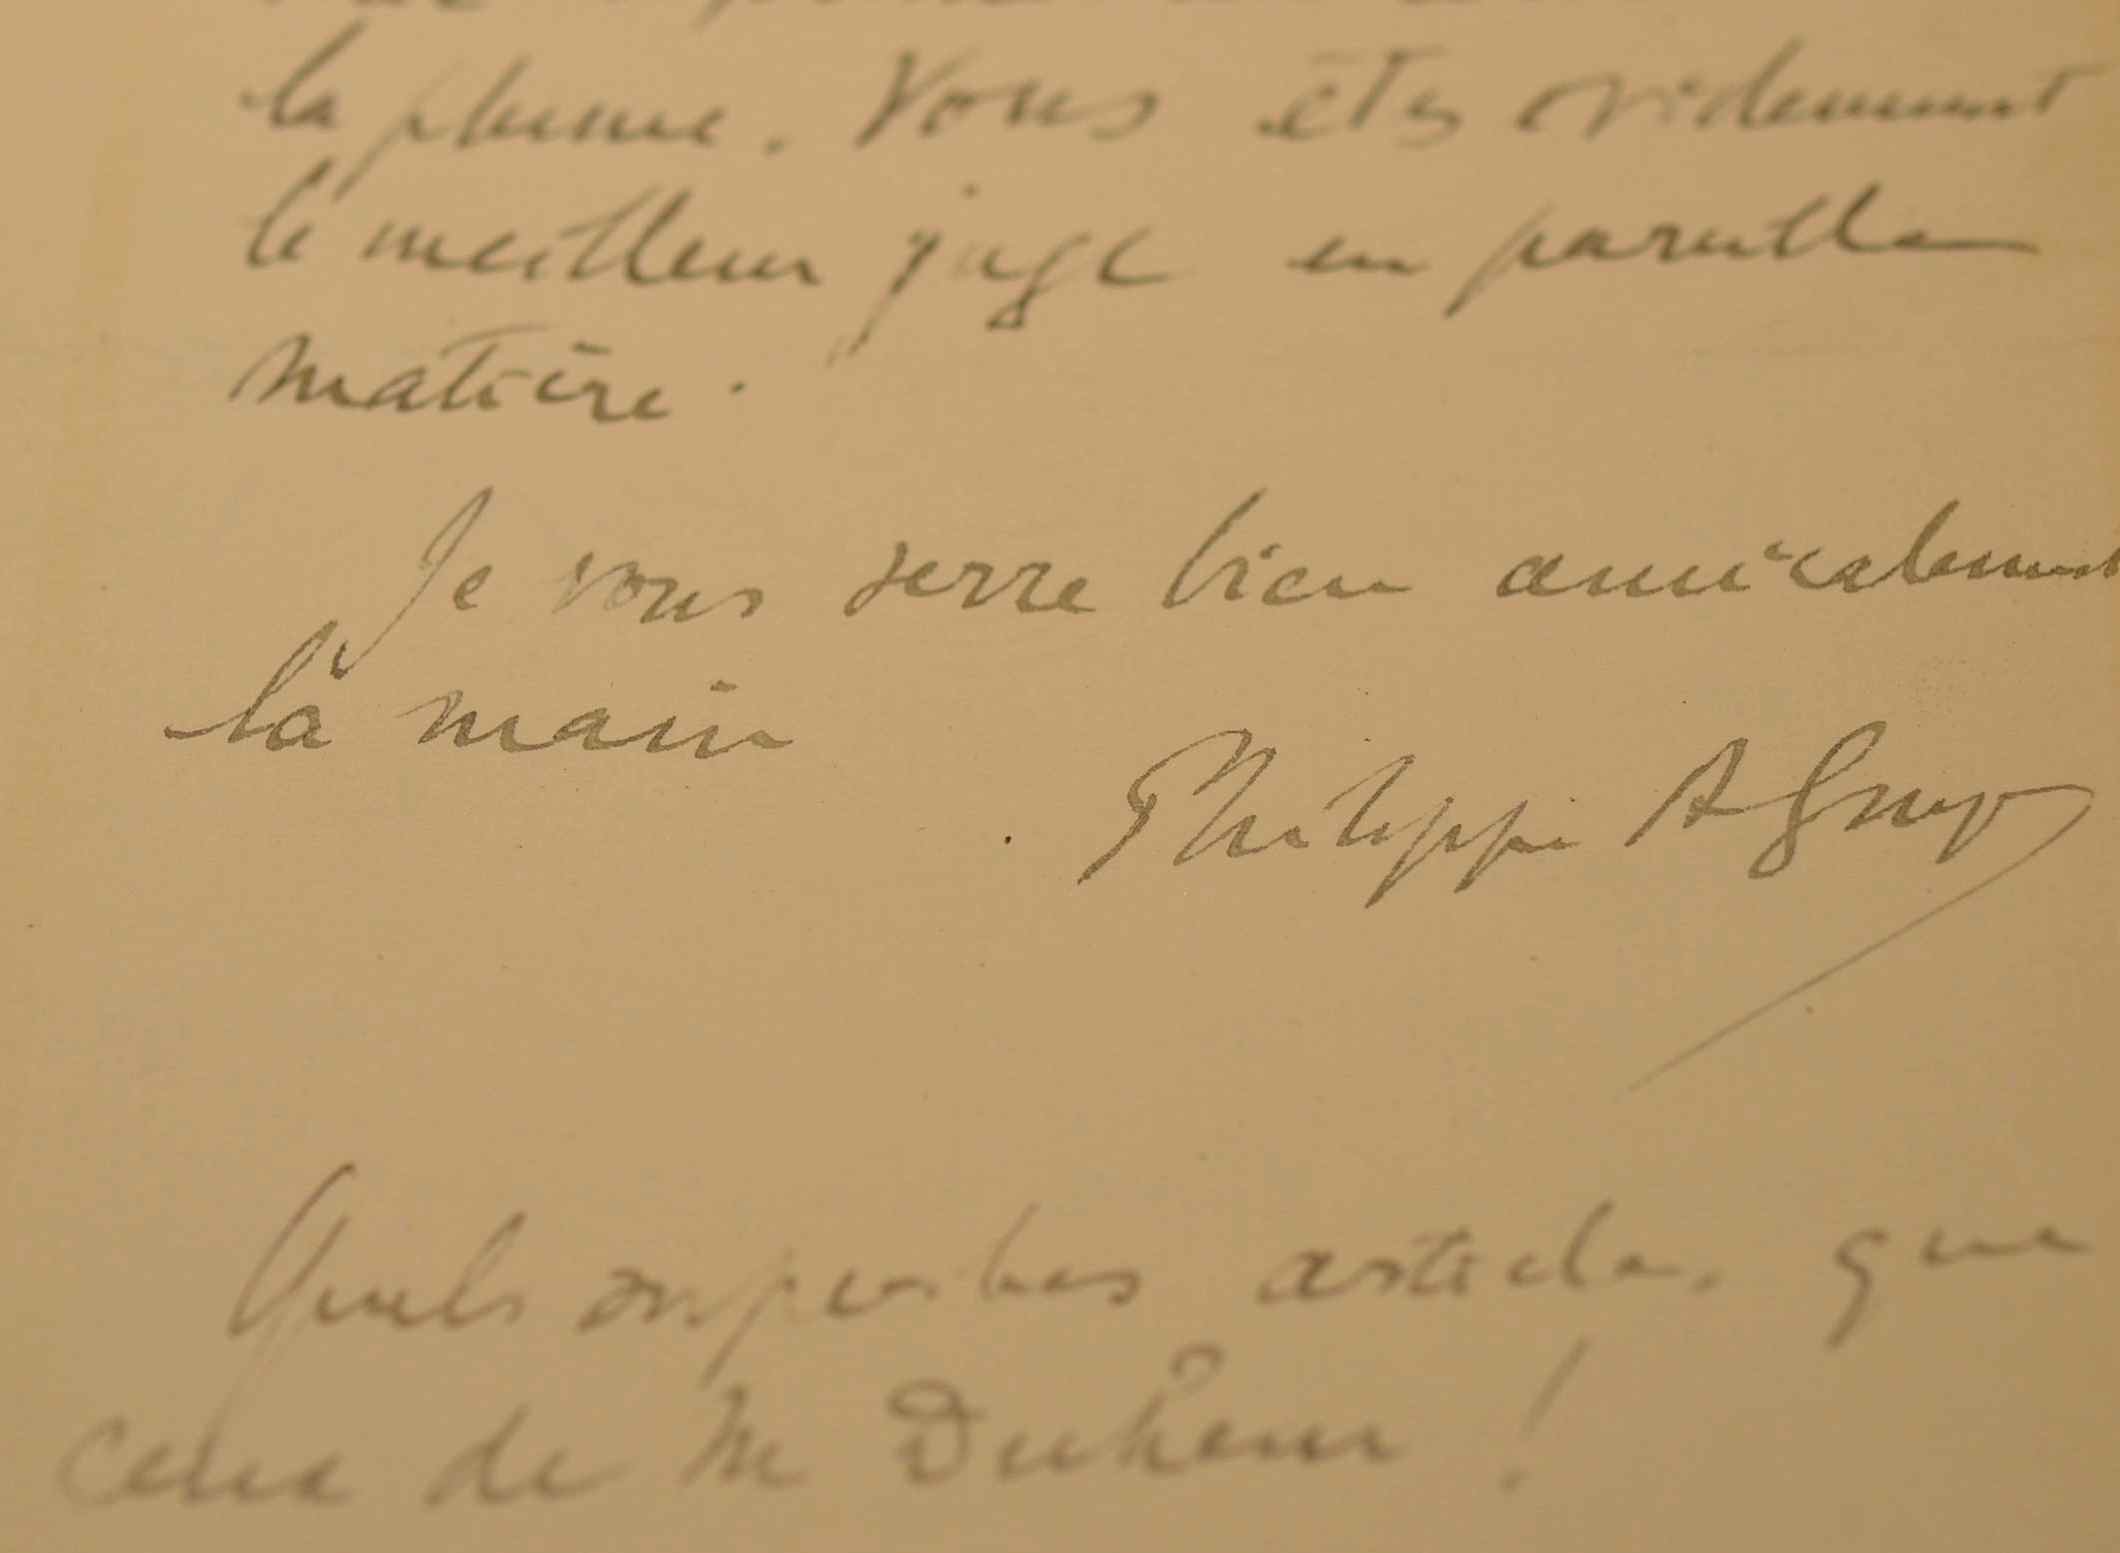 la plume. Vous êtes évidemment
le meilleur juge en pareille
matière.
Je vous serre bien amicalement
la main
Philippe
Quels superbes articles que
ceux de M Duhem !